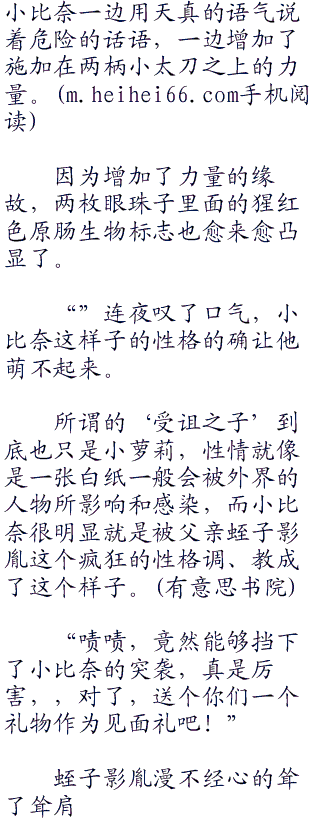 小比奈一边用天真的语气说
着危险的话语，一边增加了
施加在两柄小太刀之上的力
量。(m.heihei66.com手机阅
读)
因为增加了力量的缘
故，两枚眼珠子里面的猩红
色原肠生物标志也愈来愈凸
显了。
“”连夜叹了口气，小
比奈这样子的性格的确让他
萌不起来。
所谓的‘受诅之子’到
底也只是小萝莉，性情就像
是一张白纸一般会被外界的
人物所影响和感染，而小比
奈很明显就是被父亲蛭子影
胤这个疯狂的性格调、教成
了这个样子。(有意思书院)
“啧啧，竟然能够挡下
了小比奈的突袭，真是厉
害，，对了，送个你们一个
礼物作为见面礼吧！”
蛭子影胤漫不经心的耸
了耸肩